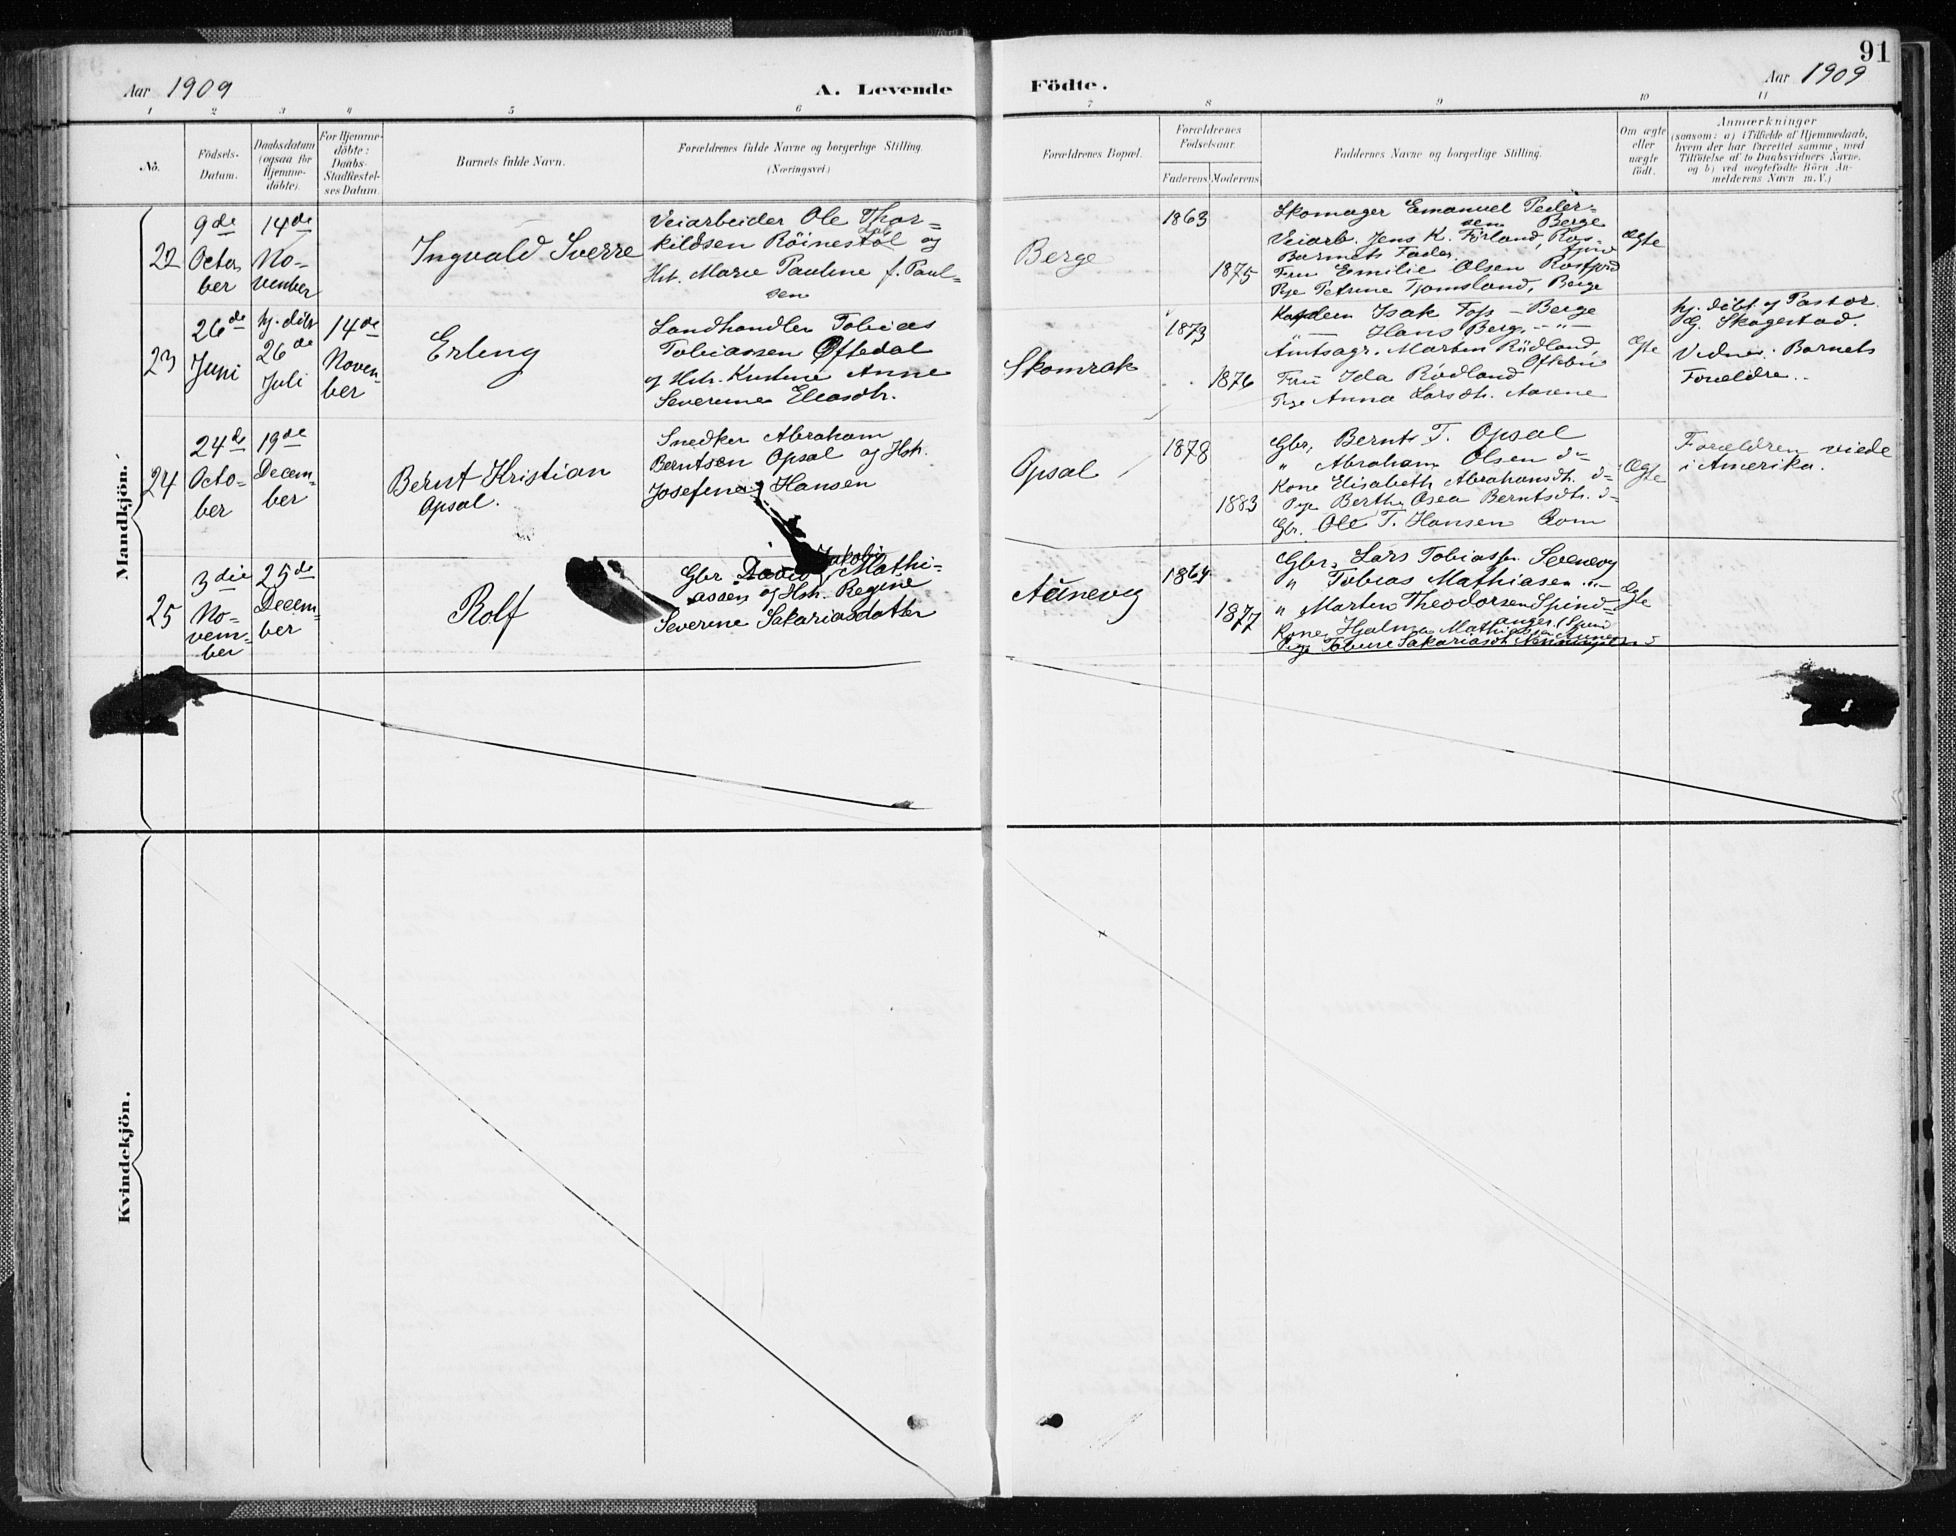 91
Aar 1909
A. Levende Fødte.
Aar 1909
1 2 3 4 5 6 7 8 9 10 11
No.
Födsels-
Datum.
Daabsdatum
(ogsaa for
Hjemme-
döbte).
For Hjemme-
döbte:
Daabs-
Stadfæstel-
ses Datum.
Barnets fulde Navn.
Forældrenes fulde Navne og borgerlige Stilling.
(Næringsvei)
Forældrenes Bopæl.
Forældrenes
Födselsaar.
Faderens
Moderens
Faddernes Navne og borgerlige Stilling.
Om ægte
eller
uægte
födt.
Anmærkninger
(saasom: a) i Tilfælde af Hjemmedaab,
hvem der har forrettet samme, med
Tilföielse af to Daabsvidners Navne,
og b) ved uægtefödte Börn An-
melderens Navn m.V.)
Mandkjön.
22
9de
Octo-
ber
14de
No-
vember
Ingvald Sverre
Veiarbeider Ole Thor-
kildsen Röinestöl og
Hst. Marie Pauline f. Paul-
sen
Berge
1863
1875
Skomager Emanuel Peder-
sen Berge
Veiarb. Jens K. Förland, Ros-
fjord
Barnets Fader
Fru Emilie Olsen Rosfjord
Pige Petrine Tjomsland, Berge
Ægte
23
26de
Juni
hj. döbt
26de
Juli
14de
Novem-
ber
Erling
Landhandler Tobias
Tobiassen Øftedal
og Hstr. Kristine Anne
Severine Eliasdtr.
Skomrak
1873
1876
Isak Foss - Berge
- Hans Berg. - " -
Amtsagr. Marten Rödland
Oftebö
Fru Ida Rödland
Pige Anna Larsdtr. Aasene
Ægte
hj. döbt af Pastor
G. Skagestad.
Vidner: Barnets
Forældre..
24
24de
Octo-
ber
19de
Decem-
ber
Bernt Kristian
Opsal.
Snedker Abraham
Berntsen Opsal og Hstr.
Josefine Hansen
Opsal
1878
1883
Gbr. Bernt T. Opsal
" Abraham Olsen d-
Kone Elisabeth Abrahamsdtr. d-
Pige Berthe Osea Berntsdtr. d-
Gbr. Ole T. Hansen Rom
Ægte
Forældren viede
i Amerika.
25
3die
No-
vem-
ber
25de
Decem-
ber
Rolf
Jakobi
Gbr David Mathi-
assen og Hstr. Regine
Severine Sakariasdatter
Aünevig
1864
1877
Gbr. Lars Tobiassen Sevenevig
" Tobias Mathiasen - " -
" Marten Theodorsen Spind-
anger (Spind
Kone Hjalma Mathiassen
Pige Tobine Sakariasdtr.
Ægte
Kvindekjön.